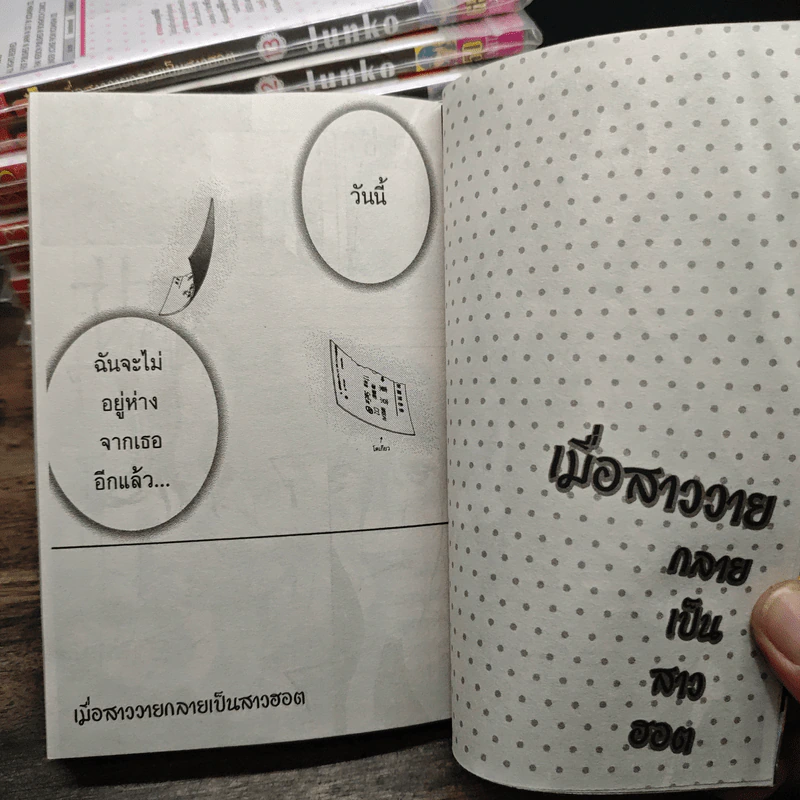 13 Junko
2 Junko
50
วันนี้
ฉันจะไม่
อยู่ห่าง
จากเธอ
อีกแล้ว...
โตเกียว
เมื่อสาววายกลายเป็นสาวฮอต
เมื่อสาววาย
กลาย
เป็น
สาว
ฮอต